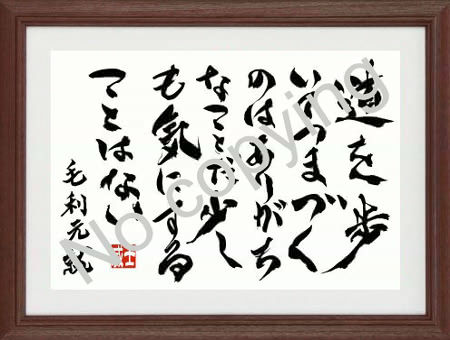 道を歩
いてつまづく
のはありがち
なことだ少し
も気にする
ことはない
毛利元就
No copying